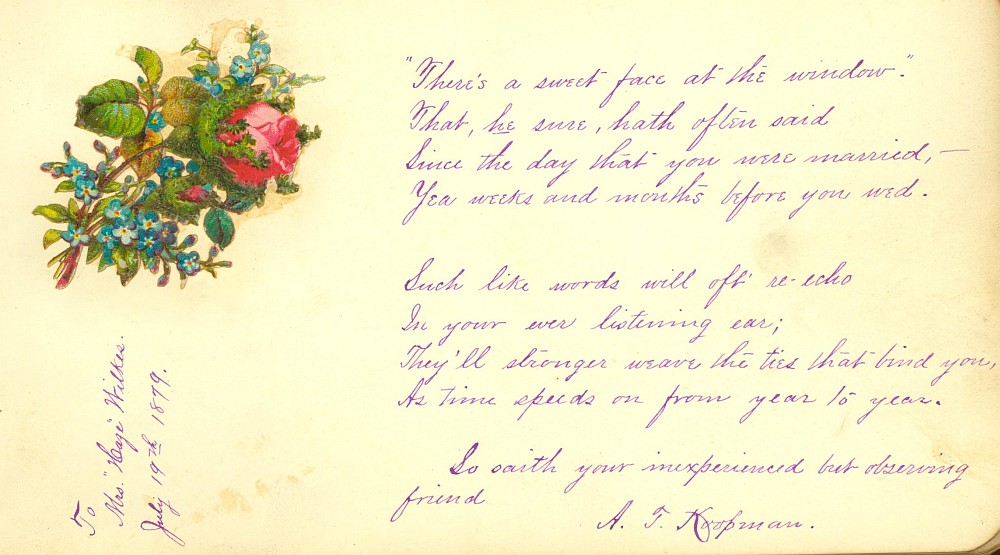 "There's a sweet face at the window."
That, he sure, hath often said
Since the day that you were married,—
Yea weeks and months before you wed.
Such like words will oft' re-echo
In your ever listening ear;
They'll stronger weave the ties that bind you,
As time speeds on from year to year.
So saith your inexperienced but observing
friend
A. T. Koopman.
To
Mrs. "Wilkes.
July 19th 1899.